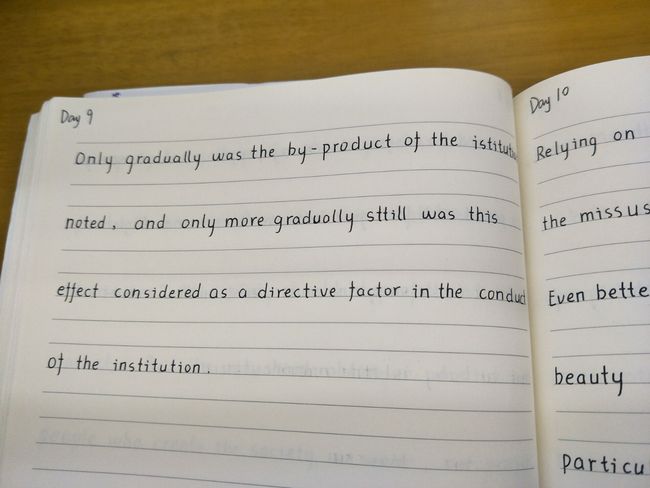 Day 9
Only gradually was the by-product of the
noted, and only more gradually sttill was this
effect considered as a directive factor in the
of the institution.
Day 10
Relying on
the
Even
beauty